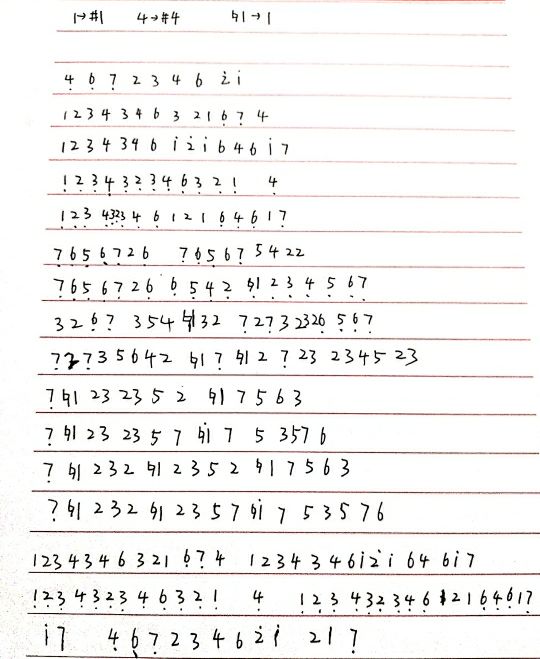 1→#1 4→#4 ♮1→1
4̣ 6̣ 7̣ 2 3 4 6 2̇ i
1 2 3 4 3 4 6 3 2 1 6̣ 7̣ 4
1 2 3 4 3 4 6 i 2̇ i 6 4 6 i 7
1̣ 2̣ 3̣ 4̣ 3̣ 2̣ 3̣ 4̣ 6̣ 3̣ 2̣ 1̣ 4̣
1̣ 2̣ 3̣ 4̣3̣2̣3̣ 4̣ 6̣ 1 2 1 6̣ 4̣ 6̣ 1 7̣
7̣ 6̣ 5̣ 6̣ 7̣ 2 6 7̣ 6̣ 5̣ 6̣ 7̣ 5 4 2 2
7̣ 6̣ 5̣ 6̣ 7̣ 2 6̣ 6̣ 5̣ 4̣ 2̣ ♮1̣ 2̣ 3̣ 4̣ 5̣ 6̣ 7̣
3 2 6̣ 7̣ 3 5 4 ♮1 3 2 7̣ 2 7̣ 3 2 3 2 6̣ 5̣ 6̣ 7̣
7̣ 2 7̣ 3 5 6 4 2 ♮1 7̣ ♮1 2 7̣ 2 3 2 3 4 5 2 3
7̣ ♮1 2 3 2 3 5 2 ♮i 7 5 6 3
7̣ ♮1 2 3 2 3 5 7 ♮i 7 5 3 5 7 6
7̣ ♮1 2 3 2 ♮1 2 3 5 2 ♮1 7 5 6 3
7̣ ♮1 2 3 2 ♮1 2 3 5 7 ♮i 7 5 3 5 7 6
1 2 3 4 3 4 6 3 2 1 6̣ 7̣ 4 1 2 3 4 3 4 6 i 2̇ i 6 4 6 i 7
1̣ 2̣ 3̣ 4̣ 3̣ 2̣ 3̣ 4̣ 6̣ 3̣ 2̣ 1̣ 4̣ 1̣ 2̣ 3̣ 4̣ 3̣ 2̣ 3̣ 4̣ 6̣ 1 2 1 6̣ 4̣ 6̣ 1 7̣
i 7 4̣ 6̣ 7̣ 2 3 4 6 2̇ i 2 1 7̣